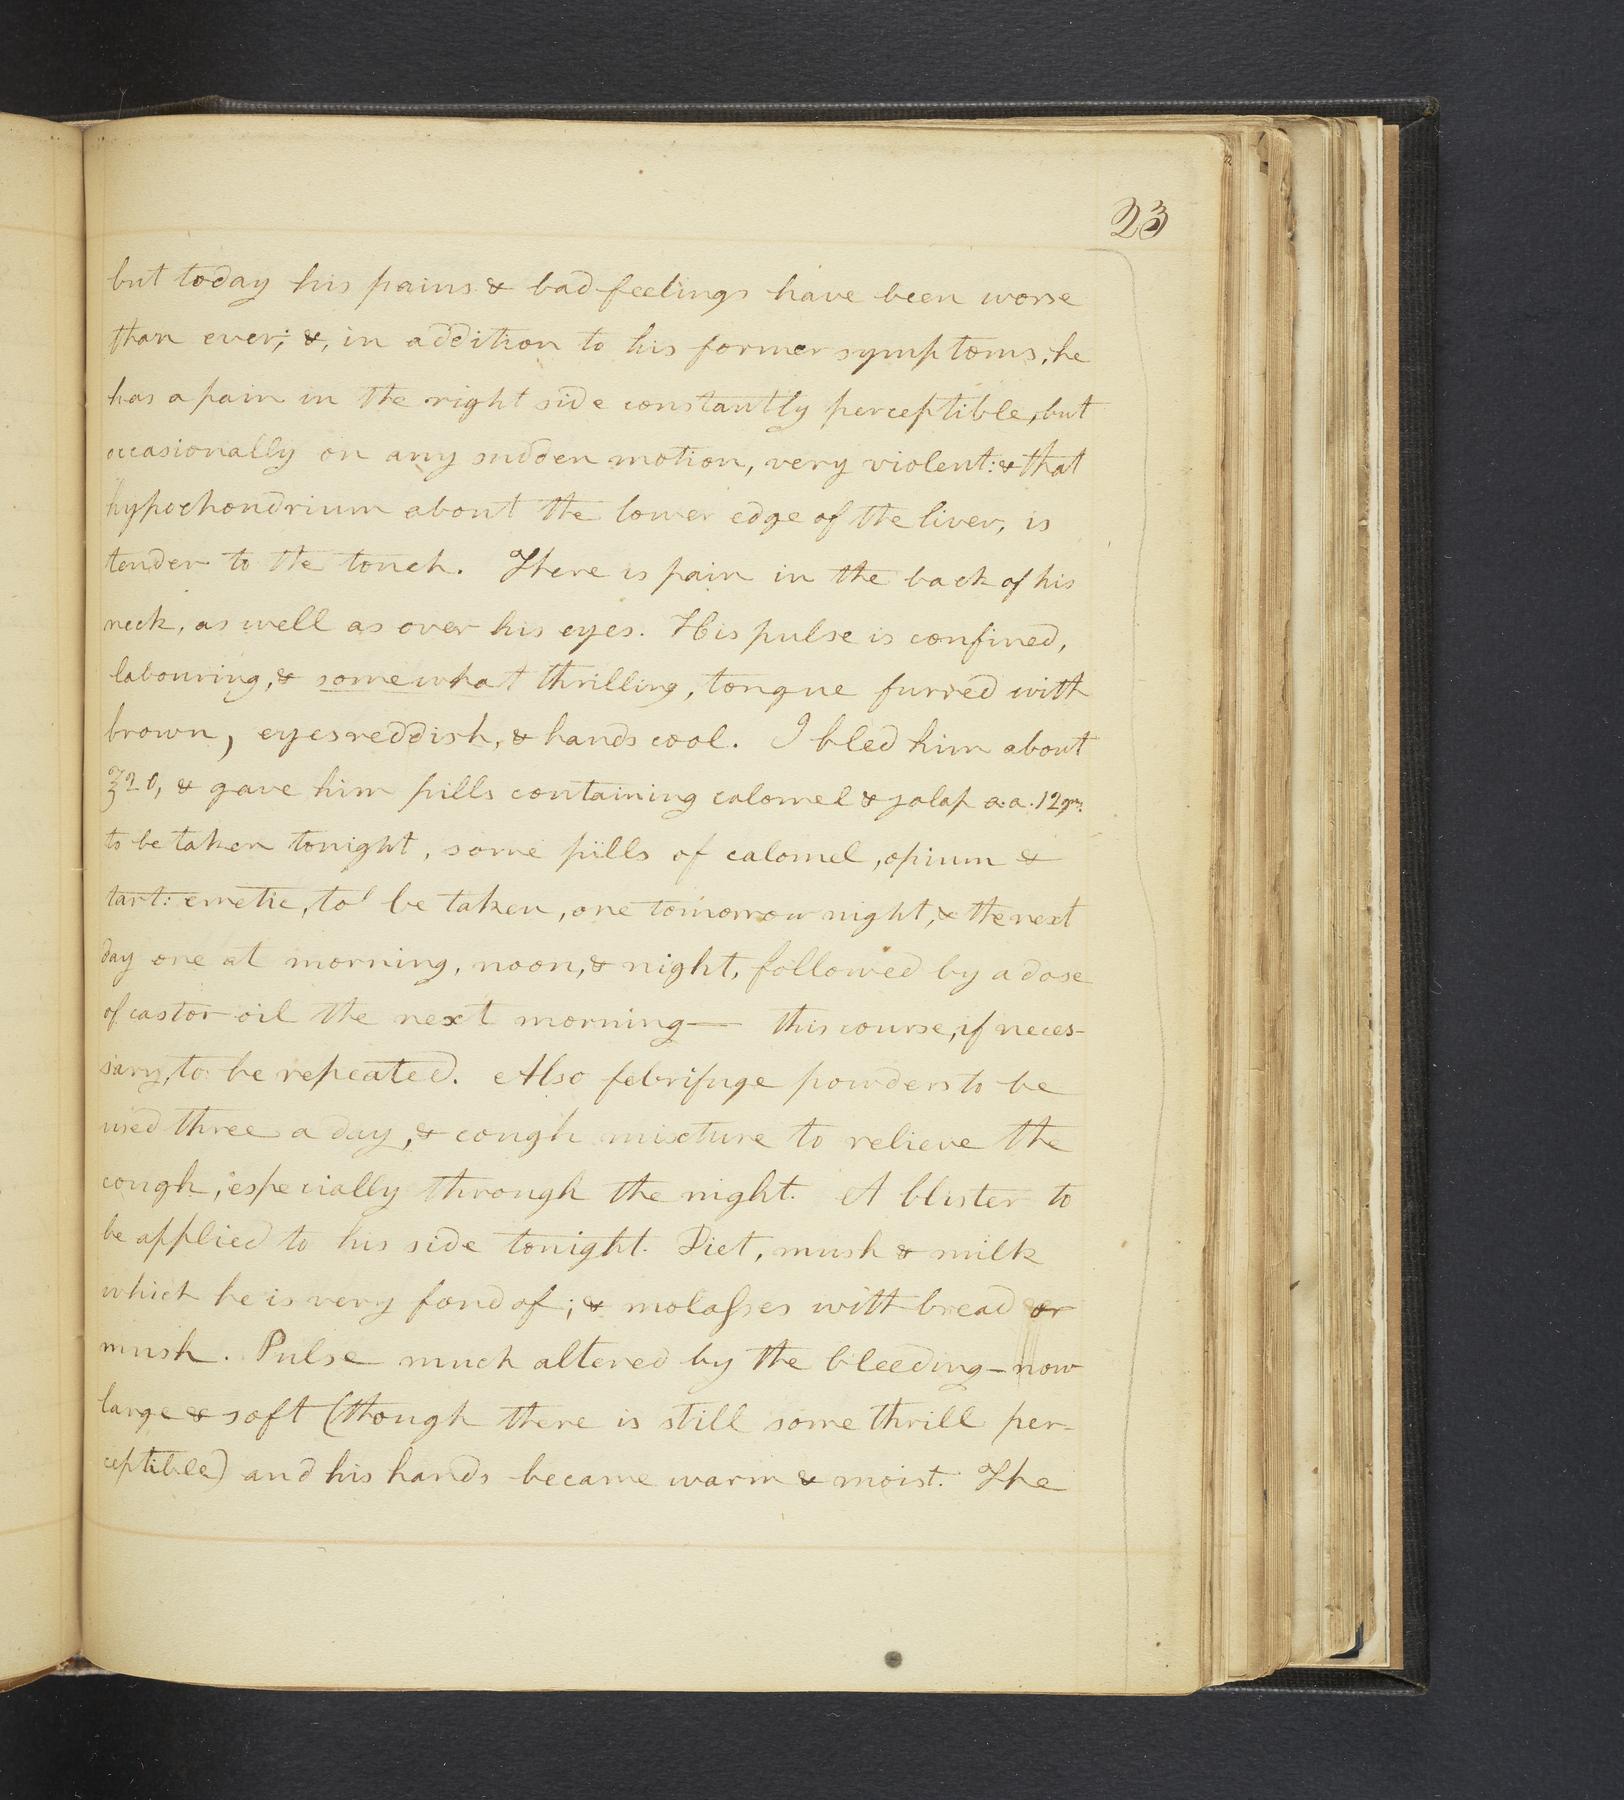 23
but today his pains & bad feelings have been worse
than ever; &, in addition to his former symptoms, he
has a pain in the right side constantly perceptible, but
occasionally on any sudden motion, very violent: & that
hypochondrium about the lower edge of the liver, is
tender to the touch. There is pain in the back of his
neck, as well as over his eyes. His pulse is confined,
labouring, & somewhat thrilling, tongue furred with
brown, eyes reddish, & hands cool. I bled him about
℥20, & gave him pills containing calomel & jalap a.a. 12grs.
to be taken tonight, some pills of calomel, opium &
tart: emetic, to be taken, one tomorrow night, & the next
day one at morning, noon, & night, followed by a dose
of castor oil the next morning— this course, if neces-
sary, to be repeated. Also febrifuge powders to be
used three a day, & cough mixture to relieve the
cough, especially through the night. A blister to
be applied to his side tonight. Diet, mush & milk
which he is very fond of; & molaſses with bread or
mush. Pulse much altered by the bleeding—now
large & soft (though there is still some thrill per-
ceptible) and his hands became warm & moist. The